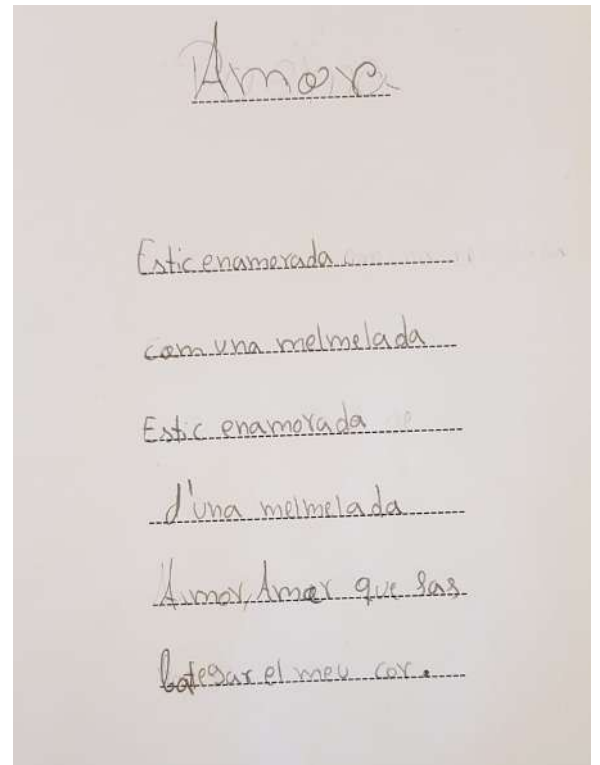 Amor
Estic enamorada
com una melmelada
Estic enamorada
d'una melmelada
Amor, Amor que fas
bategar el meu cor.